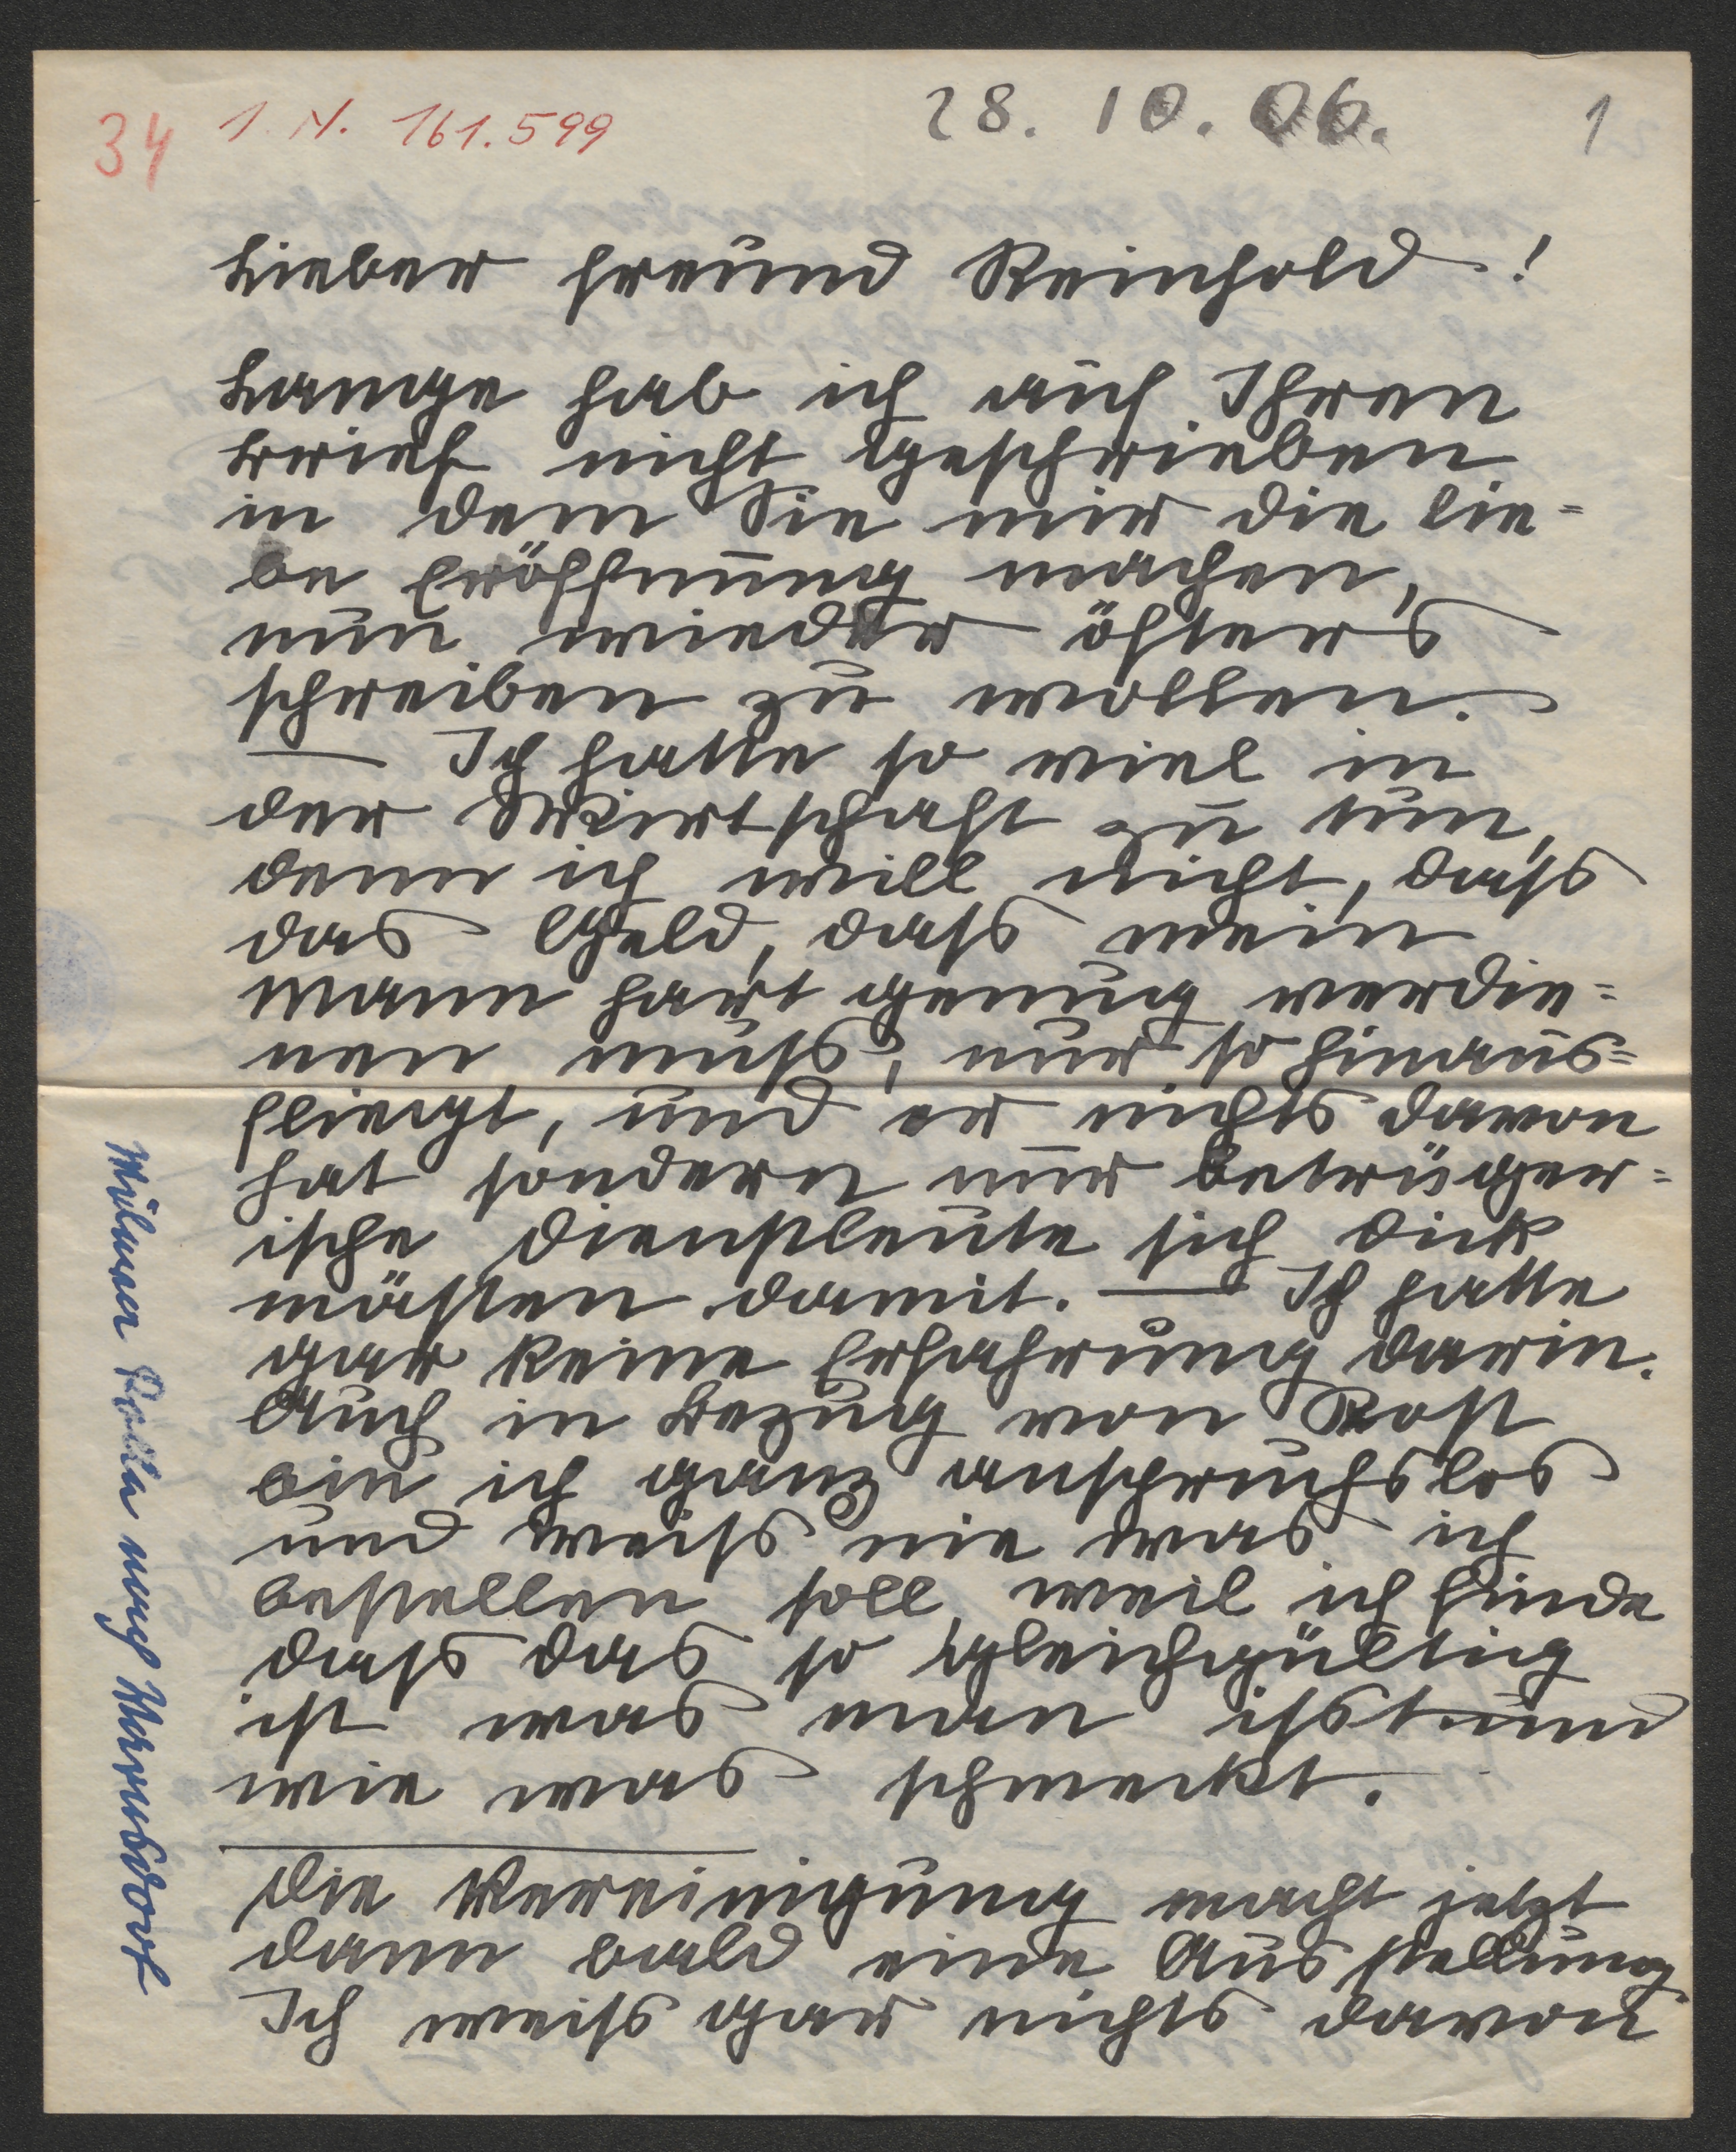 34 I. N. 161.599 28. 10. 06. 1
Lieber Freund Reinhold!
Lange hab ich auf Ihren
Brief nicht geschrieben
in dem Sie mir die lie=
be Eröffnung machen,
nun wieder öfters
schreiben zu wollen.
— Ich hatte so viel in
der Wirtschaft zu tun,
denn ich will nicht, dass
das Geld, dass mein
Mann hart genug verdie=
nen muss, nur so hinaus=
fliegt, und er nichts davon
hat sondern nur betrüger=
ische Dienstleute sich dick
mästen damit. — Ich hatte
gar keine Erfahrung darin.
Auch in Bezug von Kost
bin ich ganz anspruchslos
und weiss nie was ich
bestellen soll, weil ich finde
dass das so gleichgültig
ist was man isst und
wie was schmeckt.
Die Vereinigung macht jetzt
dann bald eine Ausstellung
Ich weiss gar nichts davon